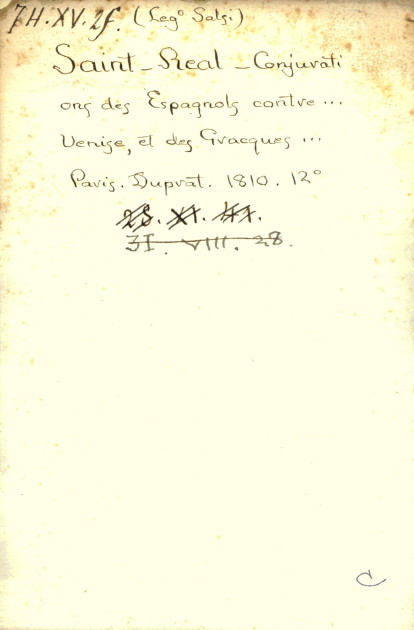 74.XV.2f. (Leg° Salsi)
Saint-Real - Conjurati
ons des Espagnols contre ...
Venise, et des Gracques ...
Paris. Duprat. 1810. 12°
31. VIII. 28.
C